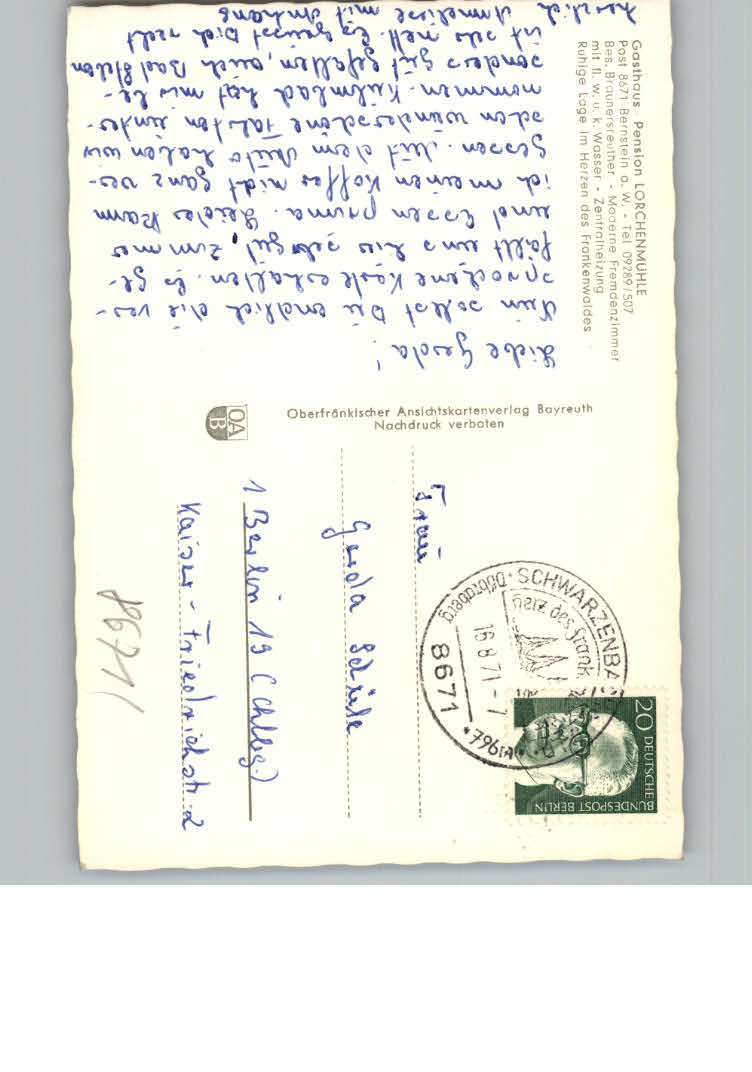 Gasthaus - Pension LORCHENMÜHLE
Post 8671 Bernstein a. W. - Tel. 09289/507
Bes. Braunersreuther - Moderne Fremdenzimmer
mit fl. w. u. k. Wasser - Zentralheizung
Ruhige Lage im Herzen des Frankenwaldes
Liebe Gerda!
Nun sollst Du endlich die ver-
sprochene Karte erhalten. Es ge-
fällt uns hier sehr gut, Zimmer
und Essen prima. Leider kann
ich meinen Koffer nicht ganz ver-
gessen. Mit dem Auto haben wir
schon wunderschöne Fahrten unter-
nommen. Kulmbach hat mir be-
sonders gut gefallen, auch Bad Steben
ist sehr nett. Es grüsst Dich recht
herzlich Anneliese mit Anhang
Oberfränkischer Ansichtskartenverlag Bayreuth
Nachdruck verboten
OA
B
Frau
Gerda
1 Berlin 19 (Chlbg.)
Kaiser-Friedrichstr. 2
8671
SCHWARZENBA
Döbraberg
Herz des Frank
16.8.71-7
8671
796
20 DEUTSCHE
BUNDESPOST BERLIN